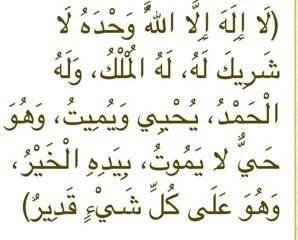 (لَا إِلَهَ إِلَّا اللهُ وَحْدَهُ لَا
شَرِيكَ لَهُ، لَهُ الْمُلْكُ، وَلَهُ
الْحَمْدُ، يُحْيِي وَيُمِيتُ، وَهُوَ
حَيٌّ لا يَمُوتُ، بِيَدِهِ الْخَيْرُ،
وَهُوَ عَلَى كُلِّ شَيْءٍ قَدِيرٌ)